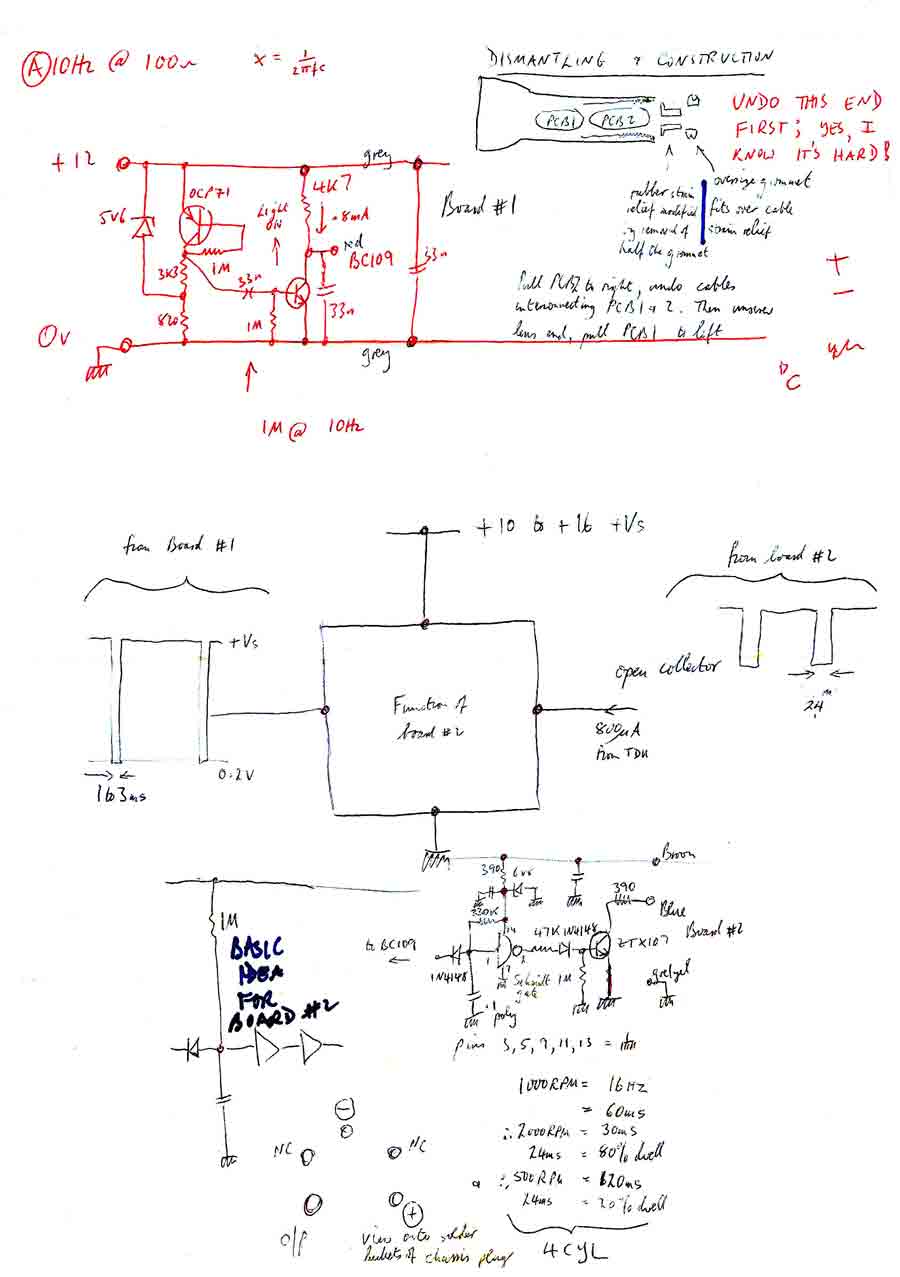 (A) 10Hz @ 100n
X = 1/2πfc
DISMANTLING & CONSTRUCTION
PCB1
PCB2
UNDO THIS END
FIRST; YES, I
KNOW IT'S HARD!
rubber strain
relief modified
by removal of
half the grommet
oversize grommet
fits over cable
strain relief
Pull PCB2 to right, undo cables
interconnecting PCB1 & 2. Then unscrew
lens end, pull PCB1 to left
+12
grey
OCP71
5V6
Light
4K7
.8mA
Board #1
red
BC109
1M
3K3
33n
33n
33n
820
1M
0v
grey
+
−
1M @ 10Hz
+10 to +16 +Vs
from Board #1
from board #2
+Vs
open collector
Function of
board #2
24
800µA
from TDH
0.2V
1 to 3ms
Brown
390
6V8
390
Blue
330K
14
47K
1N4148
ZTX107
Board #2
to BC109
1
2
7
1N4148
Schmidt
gate
1M
.1
poly
pins 3, 5, 9, 11, 13 =
1M
BASIC
IDEA
FOR
BOARD #2
1000RPM = 16Hz
= 60ms
∴ 2000RPM = 30ms
24ms = 80% dwell
∴ 500RPM = 120ms
24ms = 20% dwell
4 CYL
−
NC
NC
+
O/P
view onto solder
buckets of chassis plug